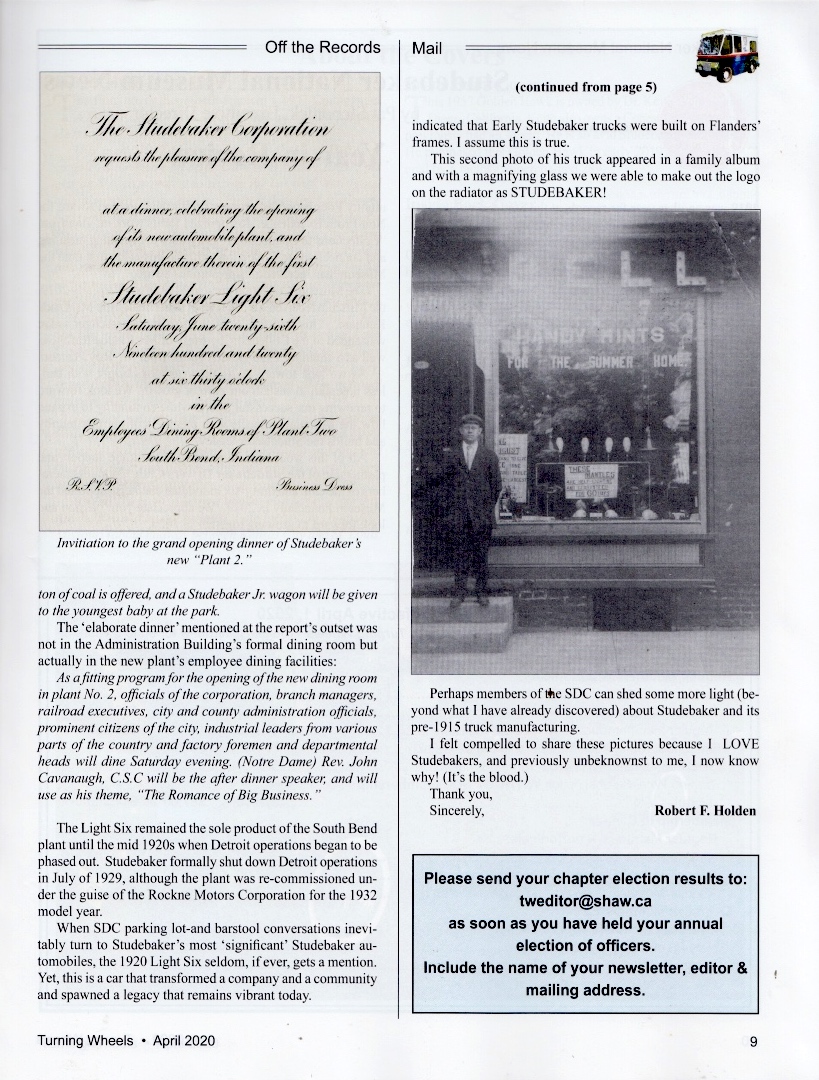 Off the Records
The Studebaker Corporation
requests the pleasure of the company of
at a dinner, celebrating the opening
of its new automobile plant, and
the manufacture therein of the first
Studebaker Light Six
Saturday, June twenty-sixth
Nineteen hundred and twenty
at six thirty o'clock
in the
Employees' Dining Rooms of Plant Two
South Bend, Indiana
R.S.V.P. Business Dress
Invitiation to the grand opening dinner of Studebaker's
new "Plant 2."
ton of coal is offered, and a Studebaker Jr. wagon will be given
to the youngest baby at the park.
The 'elaborate dinner' mentioned at the report's outset was
not in the Administration Building's formal dining room but
actually in the new plant's employee dining facilities:
As a fitting program for the opening of the new dining room
in plant No. 2, officials of the corporation, branch managers,
railroad executives, city and county administration officials,
prominent citizens of the city, industrial leaders from various
parts of the country and factory foremen and departmental
heads will dine Saturday evening. (Notre Dame) Rev. John
Cavanaugh, C.S.C will be the after dinner speaker, and will
use as his theme, "The Romance of Big Business."
The Light Six remained the sole product of the South Bend
plant until the mid 1920s when Detroit operations began to be
phased out. Studebaker formally shut down Detroit operations
in July of 1929, although the plant was re-commissioned un-
der the guise of the Rockne Motors Corporation for the 1932
model year.
When SDC parking lot-and barstool conversations inevi-
tably turn to Studebaker's most 'significant' Studebaker au-
tomobiles, the 1920 Light Six seldom, if ever, gets a mention.
Yet, this is a car that transformed a company and a community
and spawned a legacy that remains vibrant today.
Mail
(continued from page 5)
indicated that Early Studebaker trucks were built on Flanders'
frames. I assume this is true.
This second photo of his truck appeared in a family album
and with a magnifying glass we were able to make out the logo
on the radiator as STUDEBAKER!
HINTS
FOR THE SUMMER HOME
THESE
MANTLES
Perhaps members of the SDC can shed some more light (be-
yond what I have already discovered) about Studebaker and its
pre-1915 truck manufacturing.
I felt compelled to share these pictures because I LOVE
Studebakers, and previously unbeknownst to me, I now know
why! (It's the blood.)
Thank you,
Sincerely, Robert F. Holden
Please send your chapter election results to:
tweditor@shaw.ca
as soon as you have held your annual
election of officers.
Include the name of your newsletter, editor &
mailing address.
Turning Wheels • April 2020
9